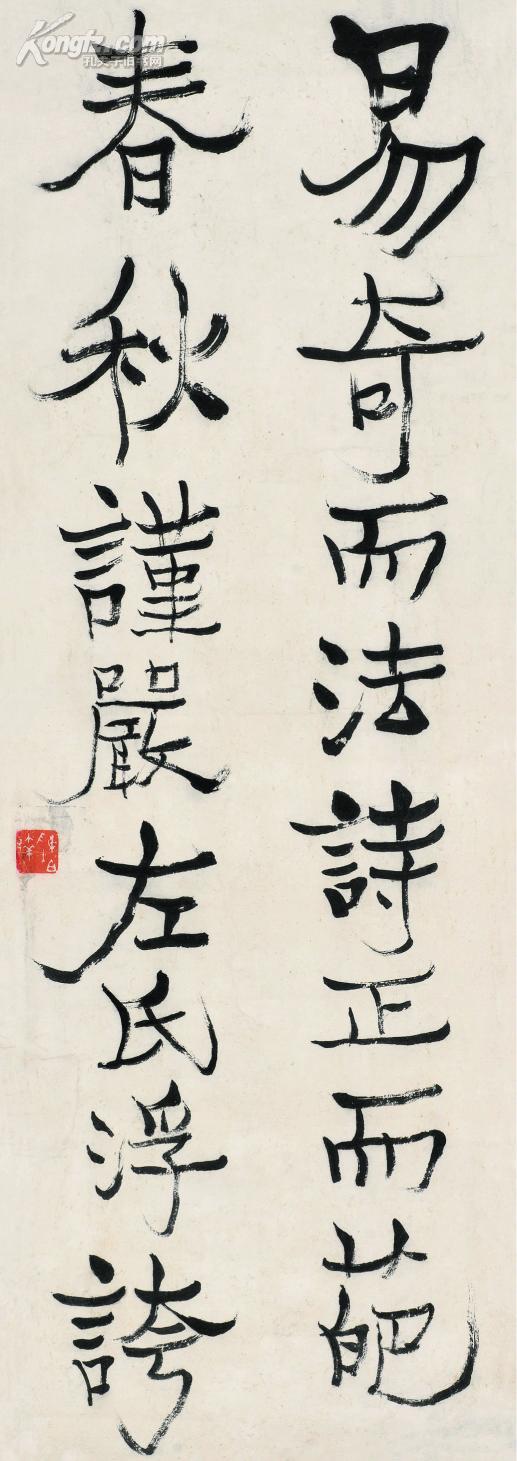 易奇而法詩正而葩
春秋謹嚴左氏浮誇
Kongfz.com
孔夫子旧书网